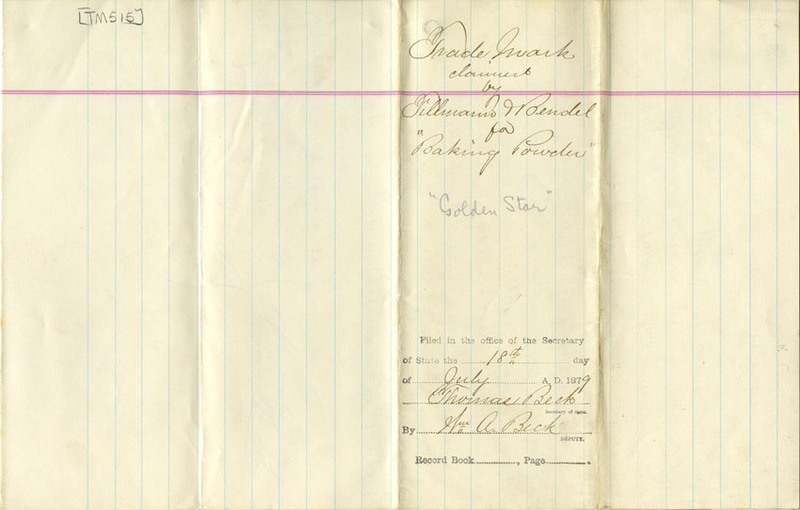 [TM515]
Trade Mark
claimed
by
Tillmann & Bendel
for
"Baking Powder"
"Golden Star"
Filed in the office of the Secretary
of State the 18th day
of July A.D. 1879
Thomas Beck
Secretary of State.
By Wm A. Beck
DEPUTY.
Record Book, Page.